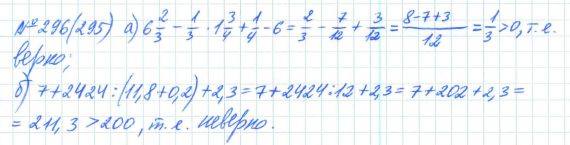 № 296(295) а) 6 2/3 - 1/3 · 1 3/4 + 1/4 - 6 = 2/3 - 7/12 + 3/12 = (8-7+3)/12 = 1/3 > 0, т.е.
верно;
б) 7+2424:(11,8+0,2)+2,3=7+2424:12+2,3=7+202+2,3=
= 211,3 > 200, т.е. неверно.